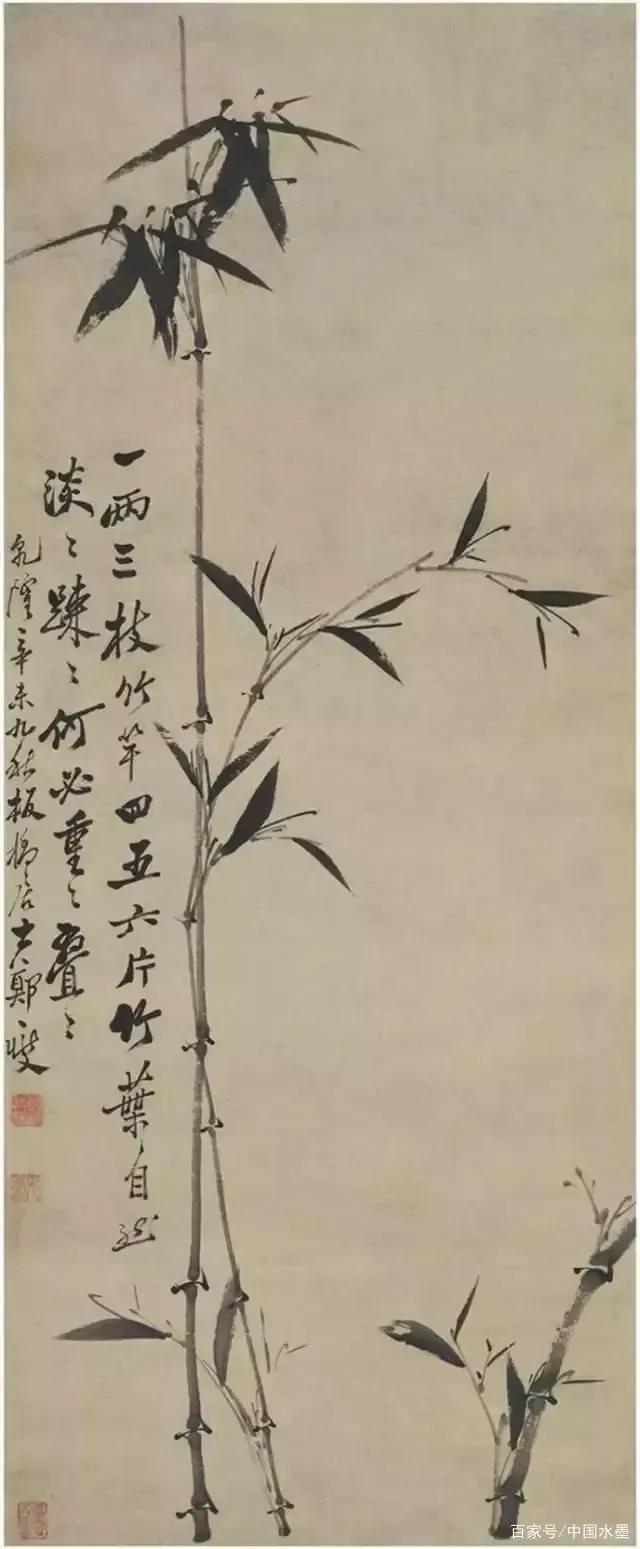 一兩三枝竹竿四五六片竹葉自然
淡〻踈〻何必重〻疊〻
乾隆辛未九秋板橋居士鄭燮
百家号/中国水墨